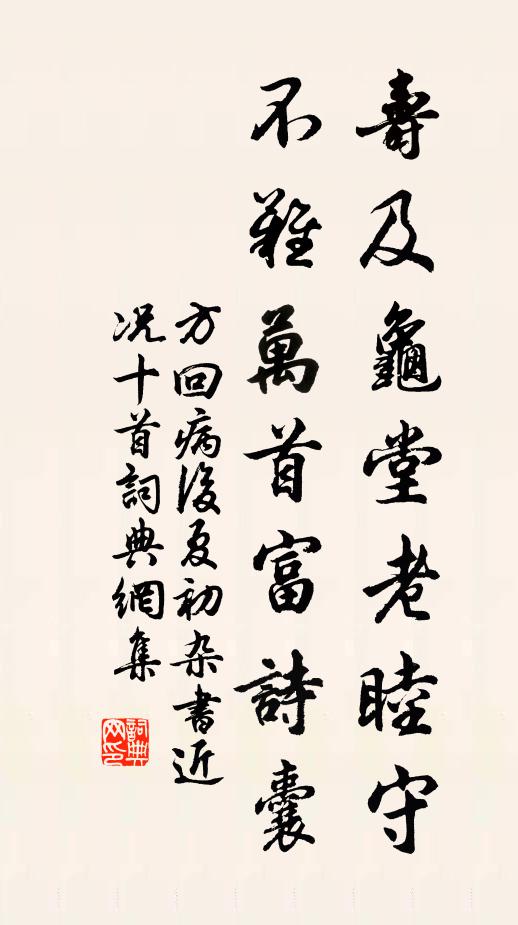 壽及龜堂老睦守
不難萬首富詩囊
方回病後夏初杂書近
况十首詞典網集
詞典網印